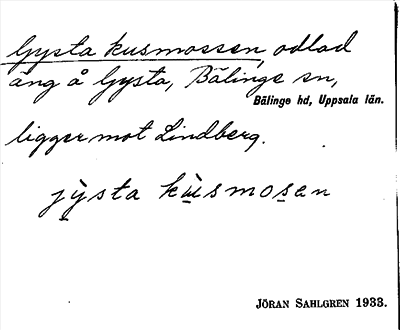 Gysta kusmossen, odlad
äng å Gysta, Bälinge sn,
Bälinge hd, Uppsala län.
ligger mot Lindberg.
jỳ̱sta kù̱smosen
JÖRAN SAHLGREN 1933.